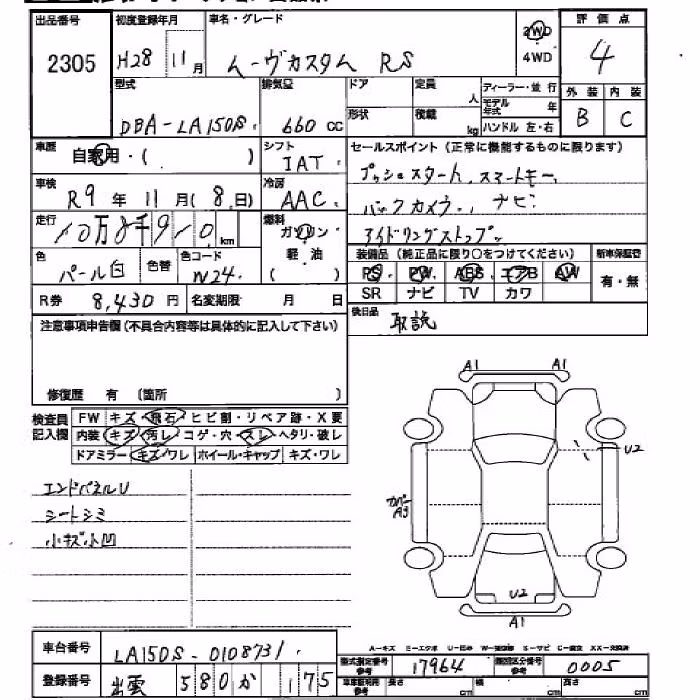 出品番号 初度登録年月 車名・グレード 評価点
2305 H28年11月 ムーヴカスタム RS 2WD 4WD 4
型式 排気量 ドア 定員 人 ディーラー・並行 外装 内装
DBA-LA150S 660cc 形状 積載 kg モデル年式 年 ハンドル 左・右 B C
車歴 自家用・( ) シフト IAT セールスポイント(正常に機能するものに限ります)
車検 R9年11月(8日) 冷房 AAC プッシュスタート、スマートキー、
走行 10万8千910km 燃料 ガソリン・軽油( ) バックカメラ、ナビ
アイドリングストップ
色 パール白 色替 色コード W24 装備品(純正品に限り○をつけてください) 新車保証書
PS PW ABS エアB AW 有・無
R券 8,430円 名変期限 月 日 SR ナビ TV カワ
注意事項申告欄(不具合内容等は具体的に記入して下さい) 後日品 取説
修復歴 有 〔箇所 〕
検査員記入欄 FW キズ・飛石・ヒビ割・リペア跡・X要
内装 キズ・汚レ・コゲ・穴・スレ・ヘタリ・破レ
ドアミラー キズ・ワレ ホイール・キャップ キズ・ワレ
A1 A1
U2
エンドパネルU
シートシミ
小キズ小凹
カバーA3
U2
A1
車台番号 LA150S-0108731
A-キズ E-エクボ U-凹み W-補修跡 S-サビ C-腐食 XX-交換済
型式指定番号 参考 17964 類別区分番号 参考 0005
登録番号 出雲 580 か 175
長さ cm 幅 cm 高さ cm